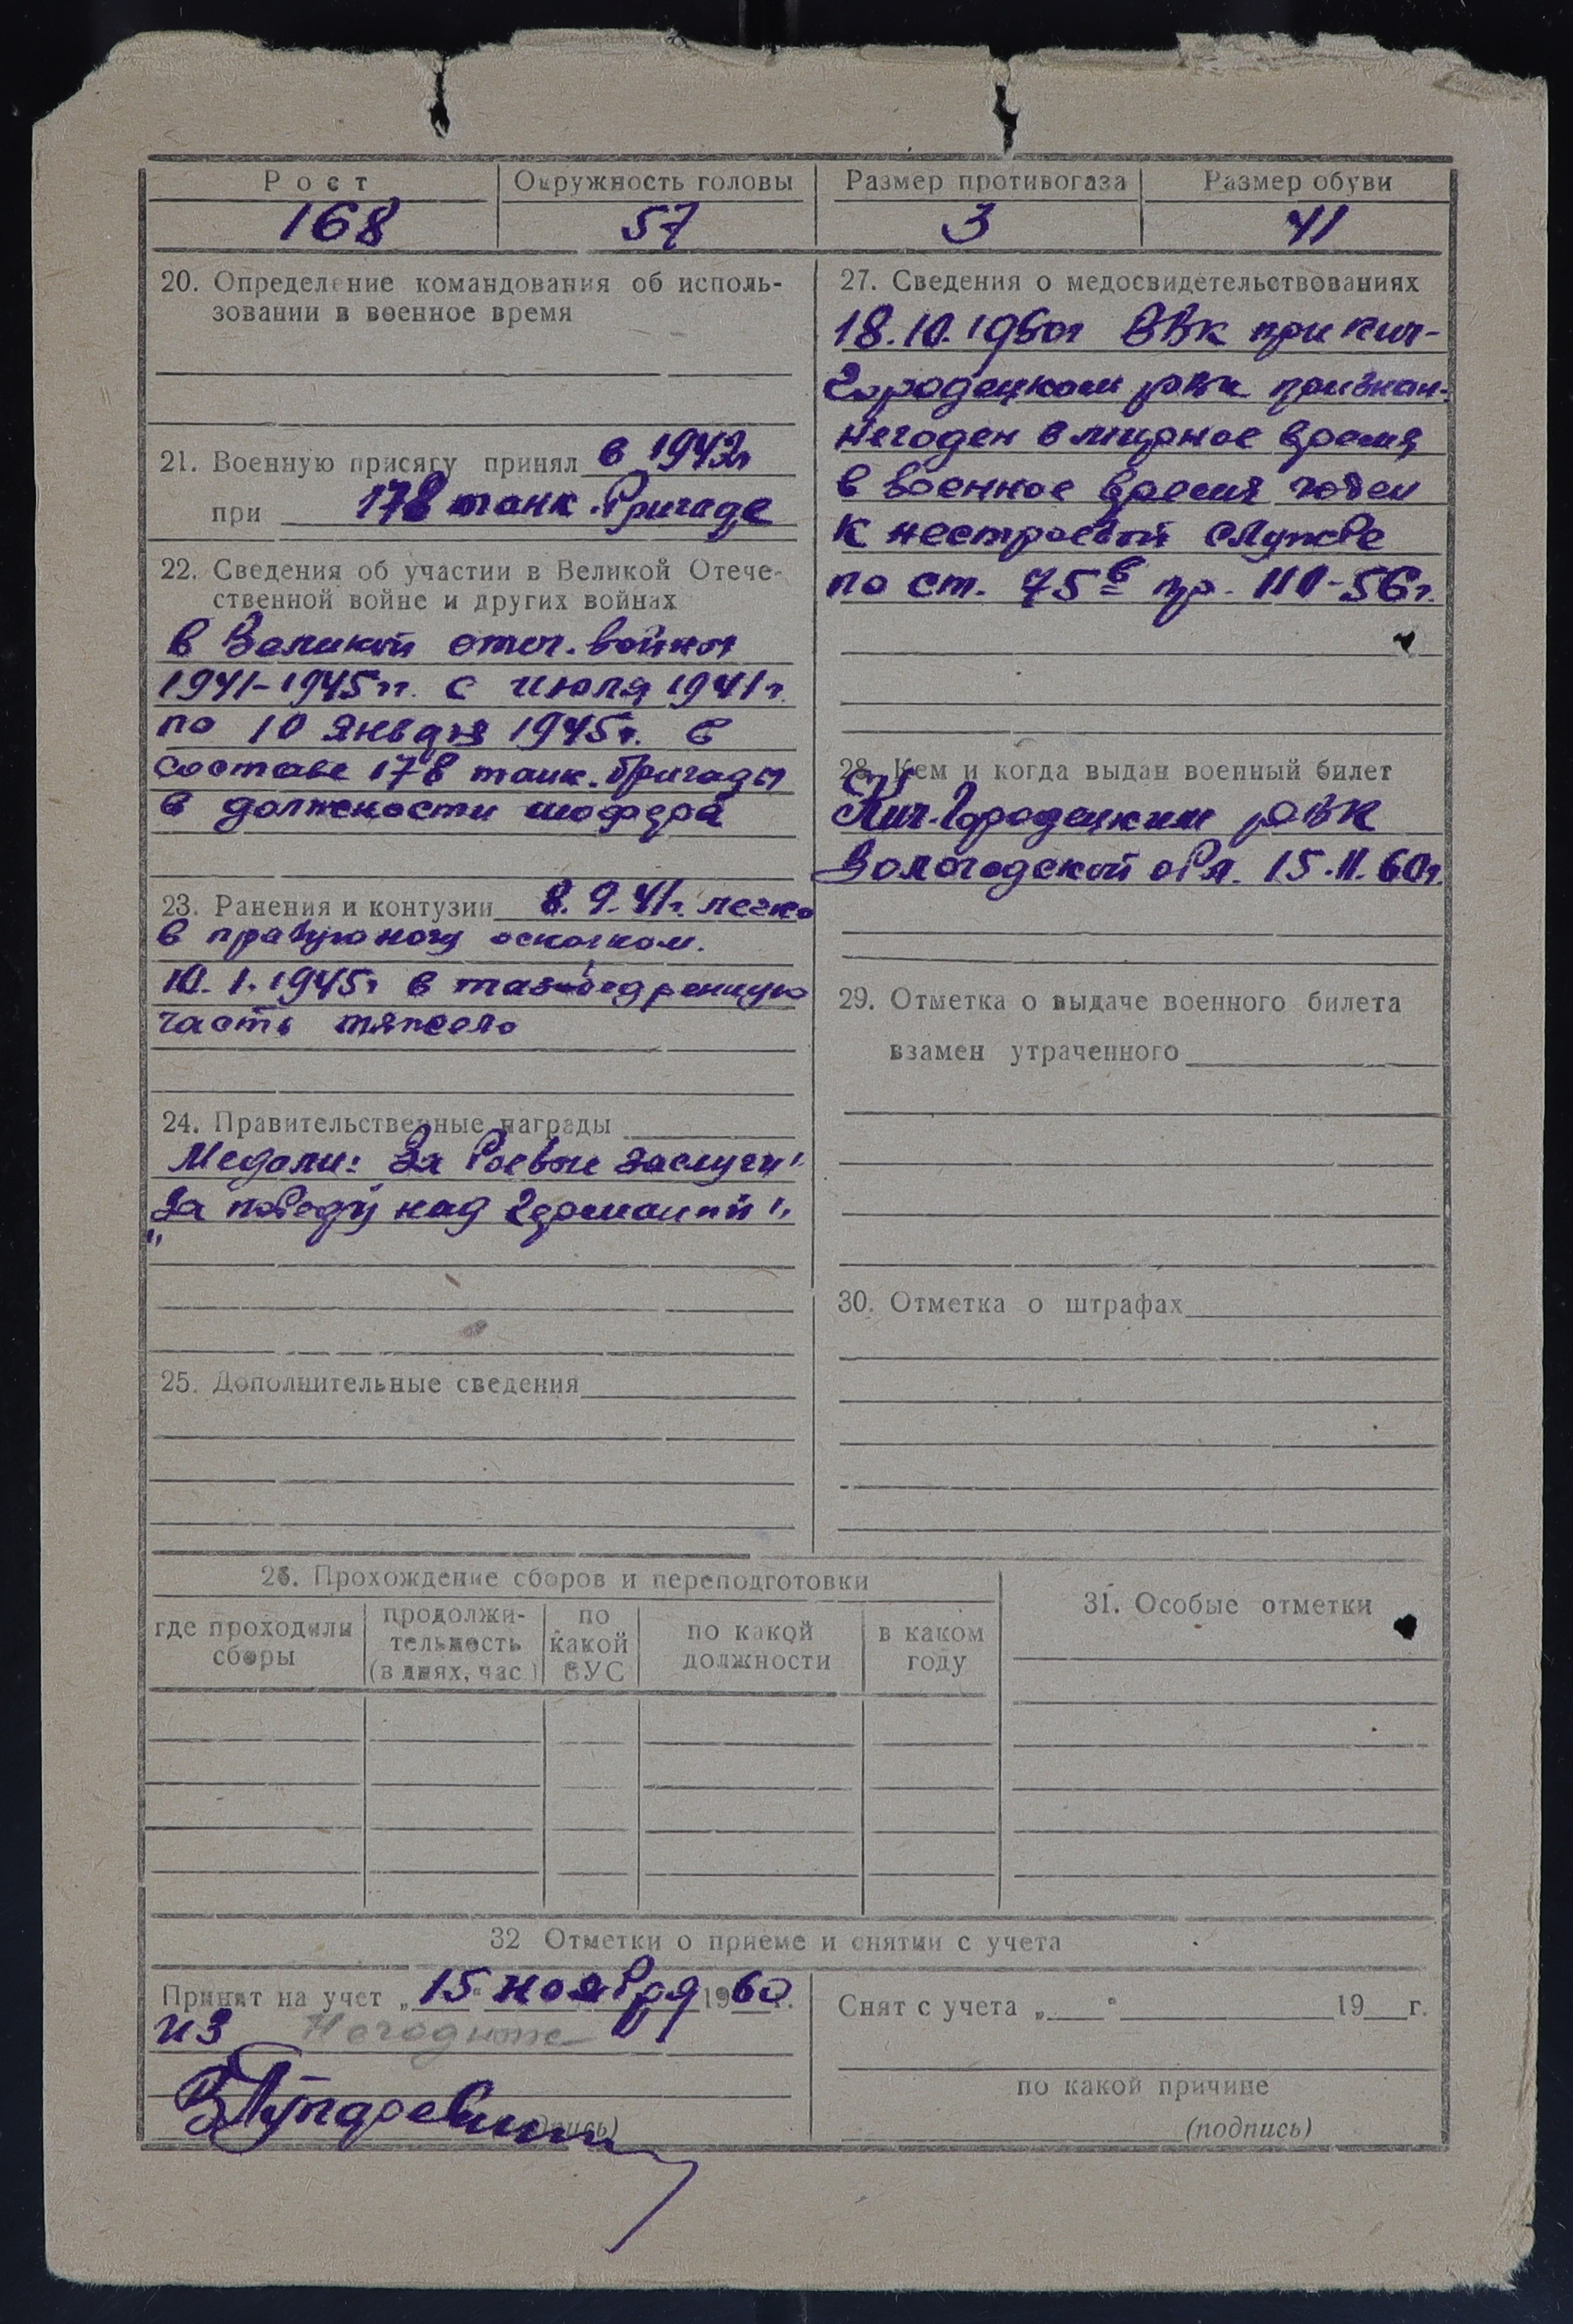 Рост
Окружность головы
Размер противогаза
Размер обуви
168
57
3
41
20. Определение командования об исполь-
зовании в военное время
21. Военную присягу принял в 1942г
при 178 танк. бригаде
22. Сведения об участии в Великой Отече-
ственной войне и других войнах
в Великой отеч. войны
1941-1945гг. с июля 1941г.
по 10 января 1945г. в
составе 178 танк. бригады
в должности шофера
23. Ранения и контузии 8.9.41г. легко
в правую ногу осколком.
10.1.1945г в тазобедренную
часть тяжело
24. Правительственные награды
Медали: За боевые заслуги"
"За победу над Германией",
25. Дополнительные сведения
27. Сведения о медосвидетельствованиях
18.10.1960г ВВК при Кич-
Городецком РВК признан-
негоден в мирное время
в военное время годен
к нестроевой службе
по ст. 75в пр. 110-56г.
28. Кем и когда выдан военный билет
Кич-Городецким РВК
Вологодской обл. 15.11.60г.
29. Отметка о выдаче военного билета
взамен утраченного
30. Отметка о штрафах
26. Прохождение сборов и переподготовки
где проходили сборы
продолжи-
тельность
(в днях, час.)
по
какой
ВУС
по какой
должности
в каком
году
31. Особые отметки
32 Отметки о приеме и снятии с учета
Принят на учет „15" ноября 1960г.
из
(подпись)
Снят с учета „ " 19 г.
по какой причине
(подпись)